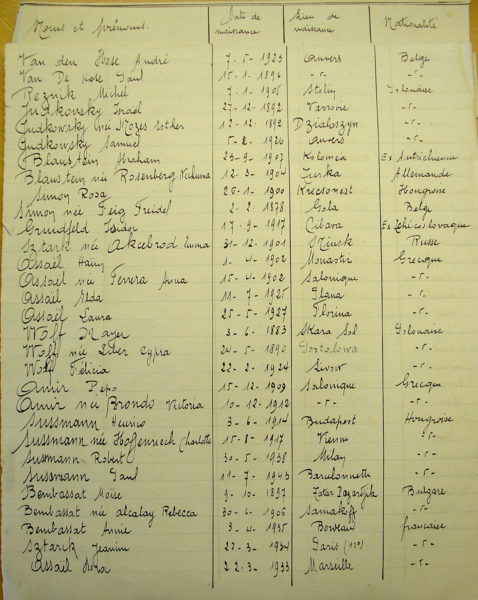 Noms et prénoms. Date de naissance Lieu de naissance Nationalité
Van den Hose André 7-5-1923 Anvers Belge
Van De Hose Paul 15-1-1896 -"- -"-
Reznik Michel 7-1-1905 Stolin Polonaise
Judkowsky Israël 27-12-1892 Varsovie -"-
Judkowsky née Mozes Esther 12-12-1892 Dzialoszyn -"-
Judkowsky Samuel 5-2-1926 Anvers -"-
Blaustein Abraham 23-9-1907 Kolomea Ex Autrichienne
Blaustein née Rosenberg 12-3-1904 Turka Allemande
Simon Rosa 25-1-1900 Hongroise
Simon née Feig Freidel 2-2-1878 Gola Belge
Grunfeld Isidor 17-9-1917 Ex Tchécoslovaque
Sztark née Akcebrod Emma 31-12-1901 Minsk Russe
Assaël Haïm 1-4-1902 Monastir Grecque
Assaël née Ferrera Anna 15-4-1902 Salonique -"-
Assaël Elda 11-7-1925 -"-
Assaël Laura 25-5-1927 Florina -"-
Wolf Mayer 3-6-1883 Polonaise
Wolf née Liber Cypra 24-5-1890 -"-
Wolf Felicia 22-2-1924 -"-
Amir Pepo 15-12-1909 Salonique Grecque
Amir née Brondo Victoria 10-12-1912 -"- -"-
Sussmann Heurico 3-6-1914 Budapest Hongroise
Sussmann née Charlotte 15-8-1917 Vienne -"-
Sussmann Robert 30-5-1938 Milan -"-
Sussmann Paul 11-7-1943 -"-
Bembassat Moïse 9-10-1897 Bulgare
Bembassat née Alcalay Rebecca 30-6-1906 Samakoff -"-
Bembassat Annie 3-4-1935 Bordeaux française
Sztark Jeanine 22-3-1934 Paris (12e) -"-
Assaël 22-3-1933 Marseille -"-